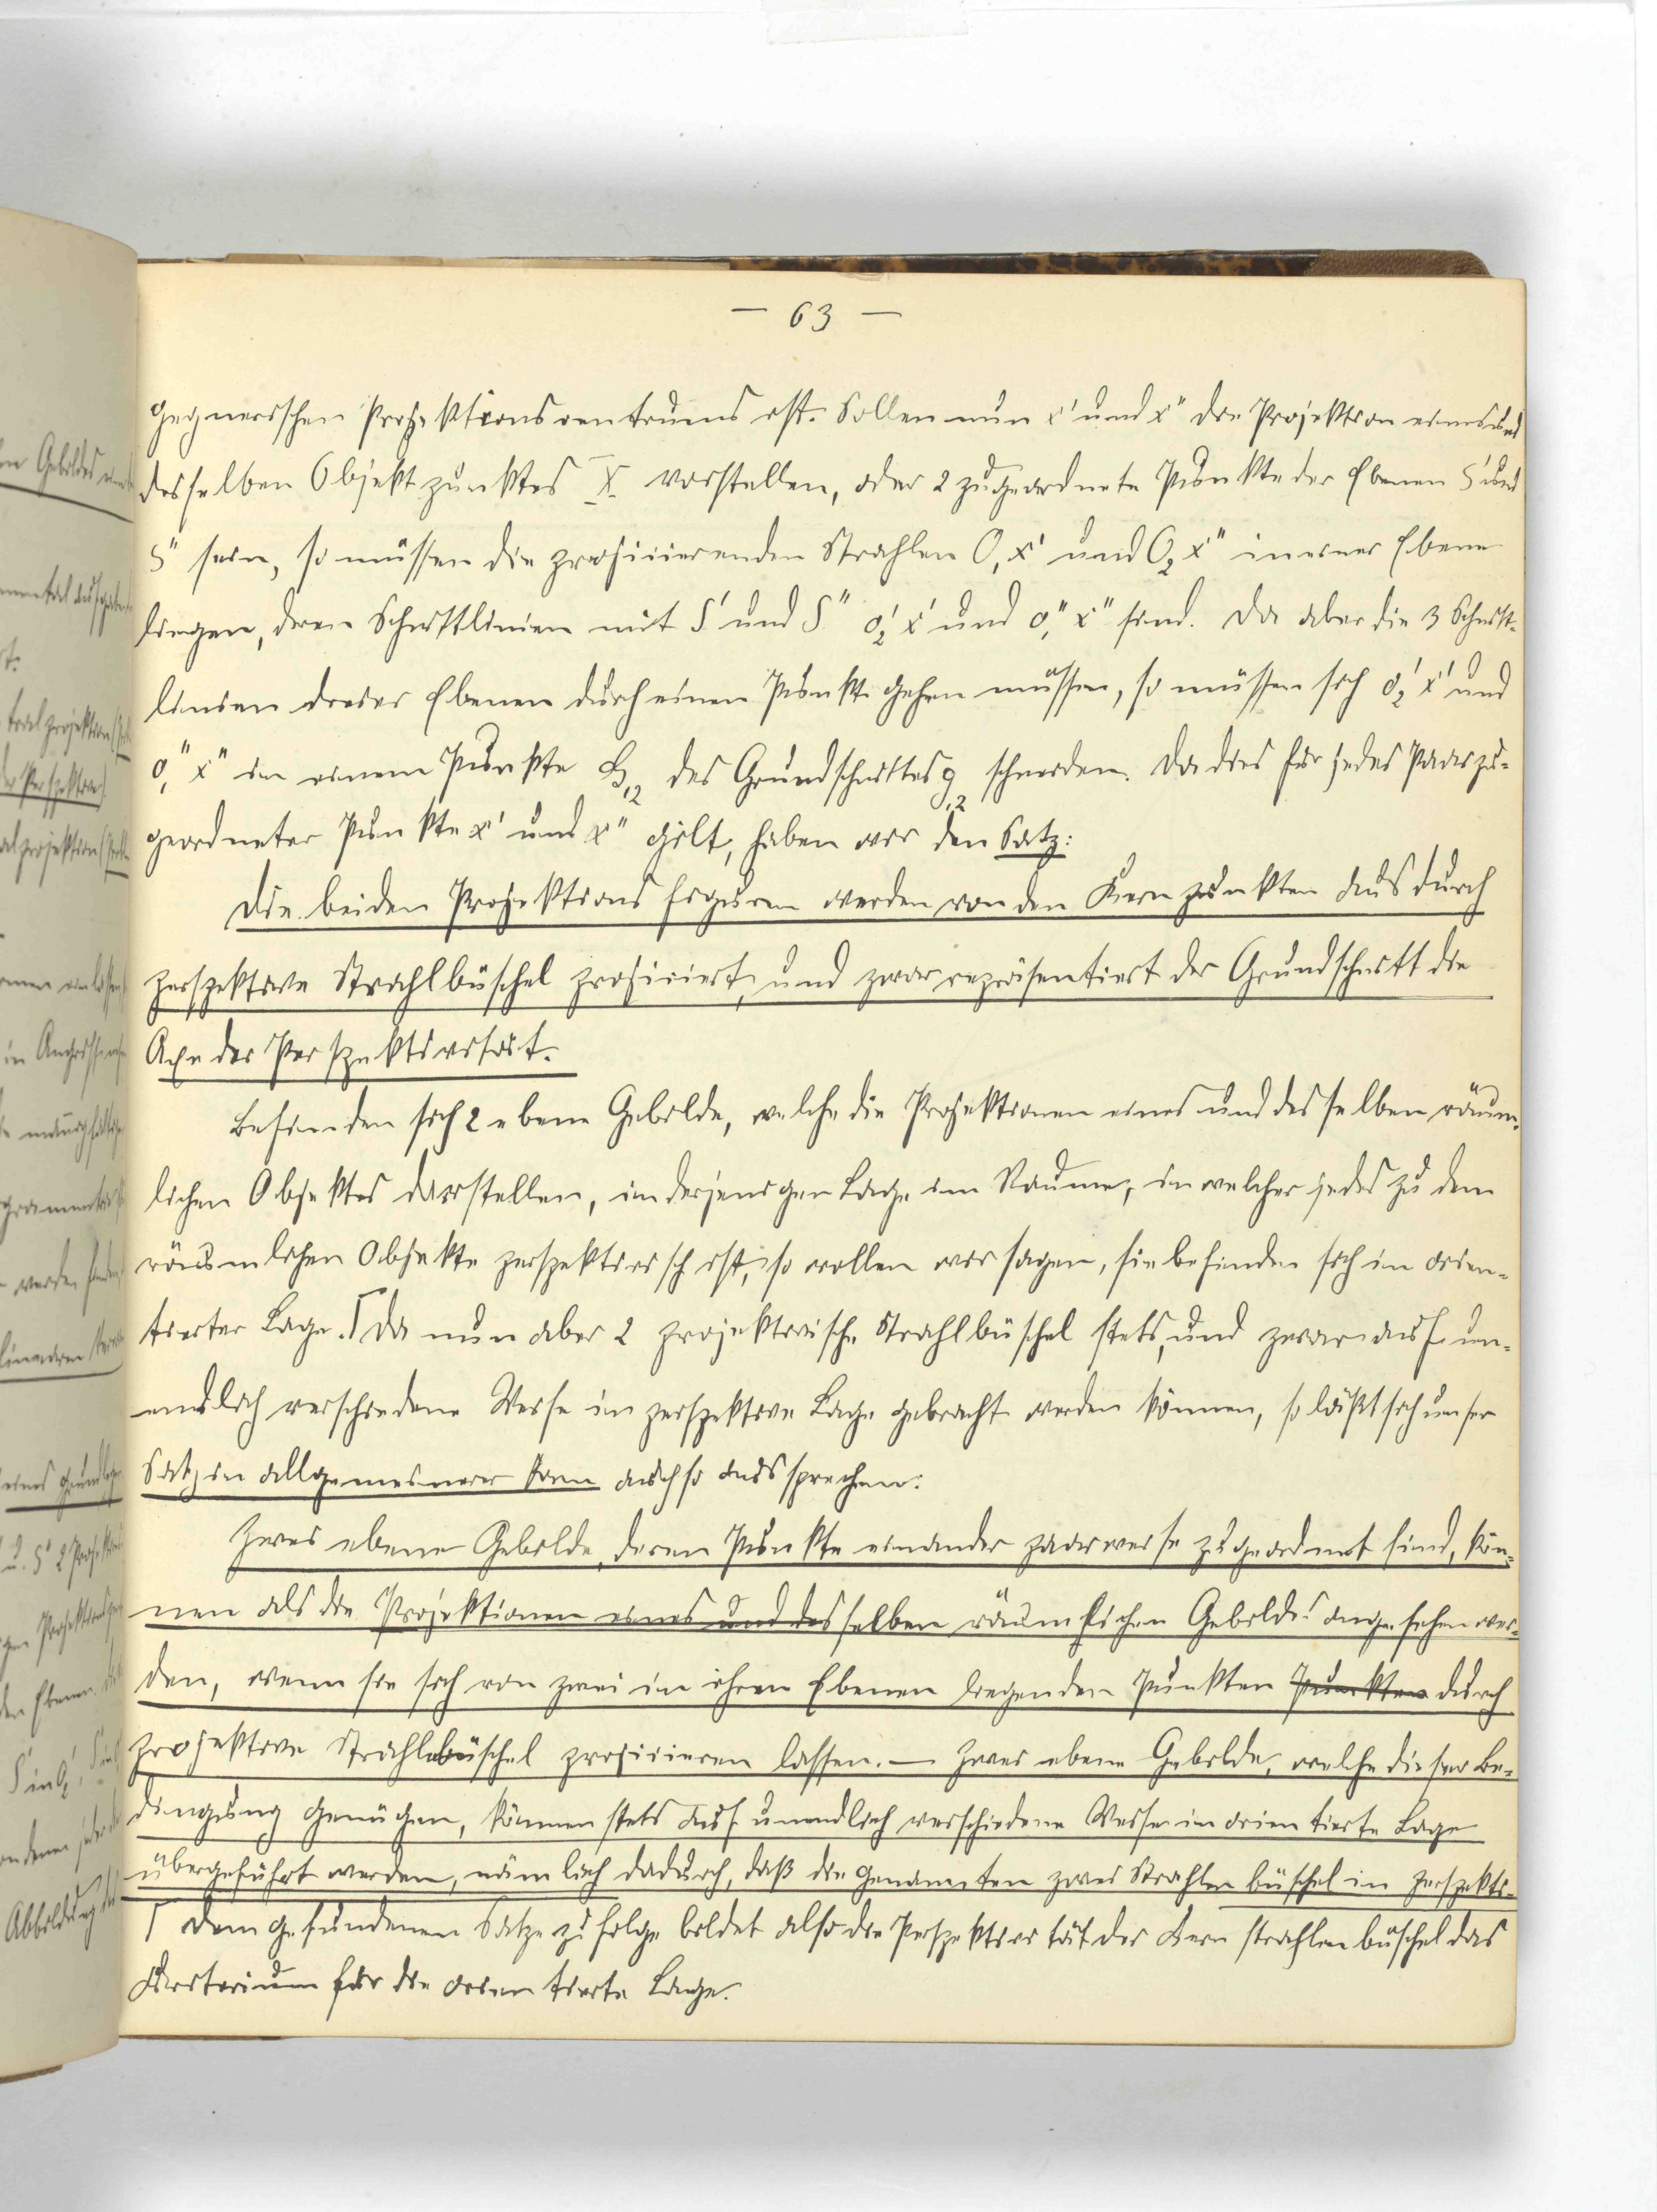 — 63 —
gegnerischen Projektionscentrums ist. Sollen nun x' und x" die Projektion eines und
desselben Objektpunktes X vorstellen, oder 2 zugeordnete Punkte der Ebenen S' und
S" sein, so müssen die projicierenden Strahlen O₁x' und O₂x" in einer Ebene
liegen, deren Schnittlinien mit S' und S" o₂'x' und o₁"x" sind. Da aber die 3 Schnitt-
linien dreier Ebenen durch einen Punkt gehen müssen, so müssen sich o₂'x' und
o₁"x" in einem Punkte des Grundschnittes g₁₂ schneiden. Da dies für jedes Paar zu-
geordneter Punkte x' und x" gilt, haben wir den Satz:
Die beiden Projektionsfiguren werden von den Kernpunkten aus durch
perspektive Strahlbüschel projiciert, und zwar repräsentiert der Grundschnitt die
Axe der Perspektivität.
Befinden sich 2 ebene Gebilde, welche die Projektionen eines und desselben räum-
lichen Objektes darstellen, in derjenigen Lage im Raume, in welcher jedes zu dem
räumlichen Objekte perspektivisch ist, so wollen wir sagen, sie befinden sich in orien-
tierter Lage. ⌈Da nun aber 2 projektivische Strahlbüschel stets, und zwar auf un-
endlich verschiedene Weise in perspektive Lage gebracht werden können, so läßt sich unser
Satz in allgemeinerer Form auch so aussprechen:
Zwei ebene Gebilde, deren Punkte einander paarweise zugeordnet sind, kön-
nen als die Projektionen eines und desselben räumlichen Gebildes angesehen wer-
den, wenn sie sich von zwei in ihren Ebenen liegenden Punkten Punkten durch
projektive Strahlbüschel projicieren lassen. — Zwei ebene Gebilde, welche dieser Be-
dingung genügen, können stets auf unendlich verschiedene Weise in orientierte Lage
übergeführt werden, nämlich dadurch, daß die genannten zwei Strahlenbüschel in perspekti-
⌈ Dem gefundenen Satze zufolge bildet also die Perspektivität der Kernstrahlenbüschel das
Kriterium für die orientierte Lage.